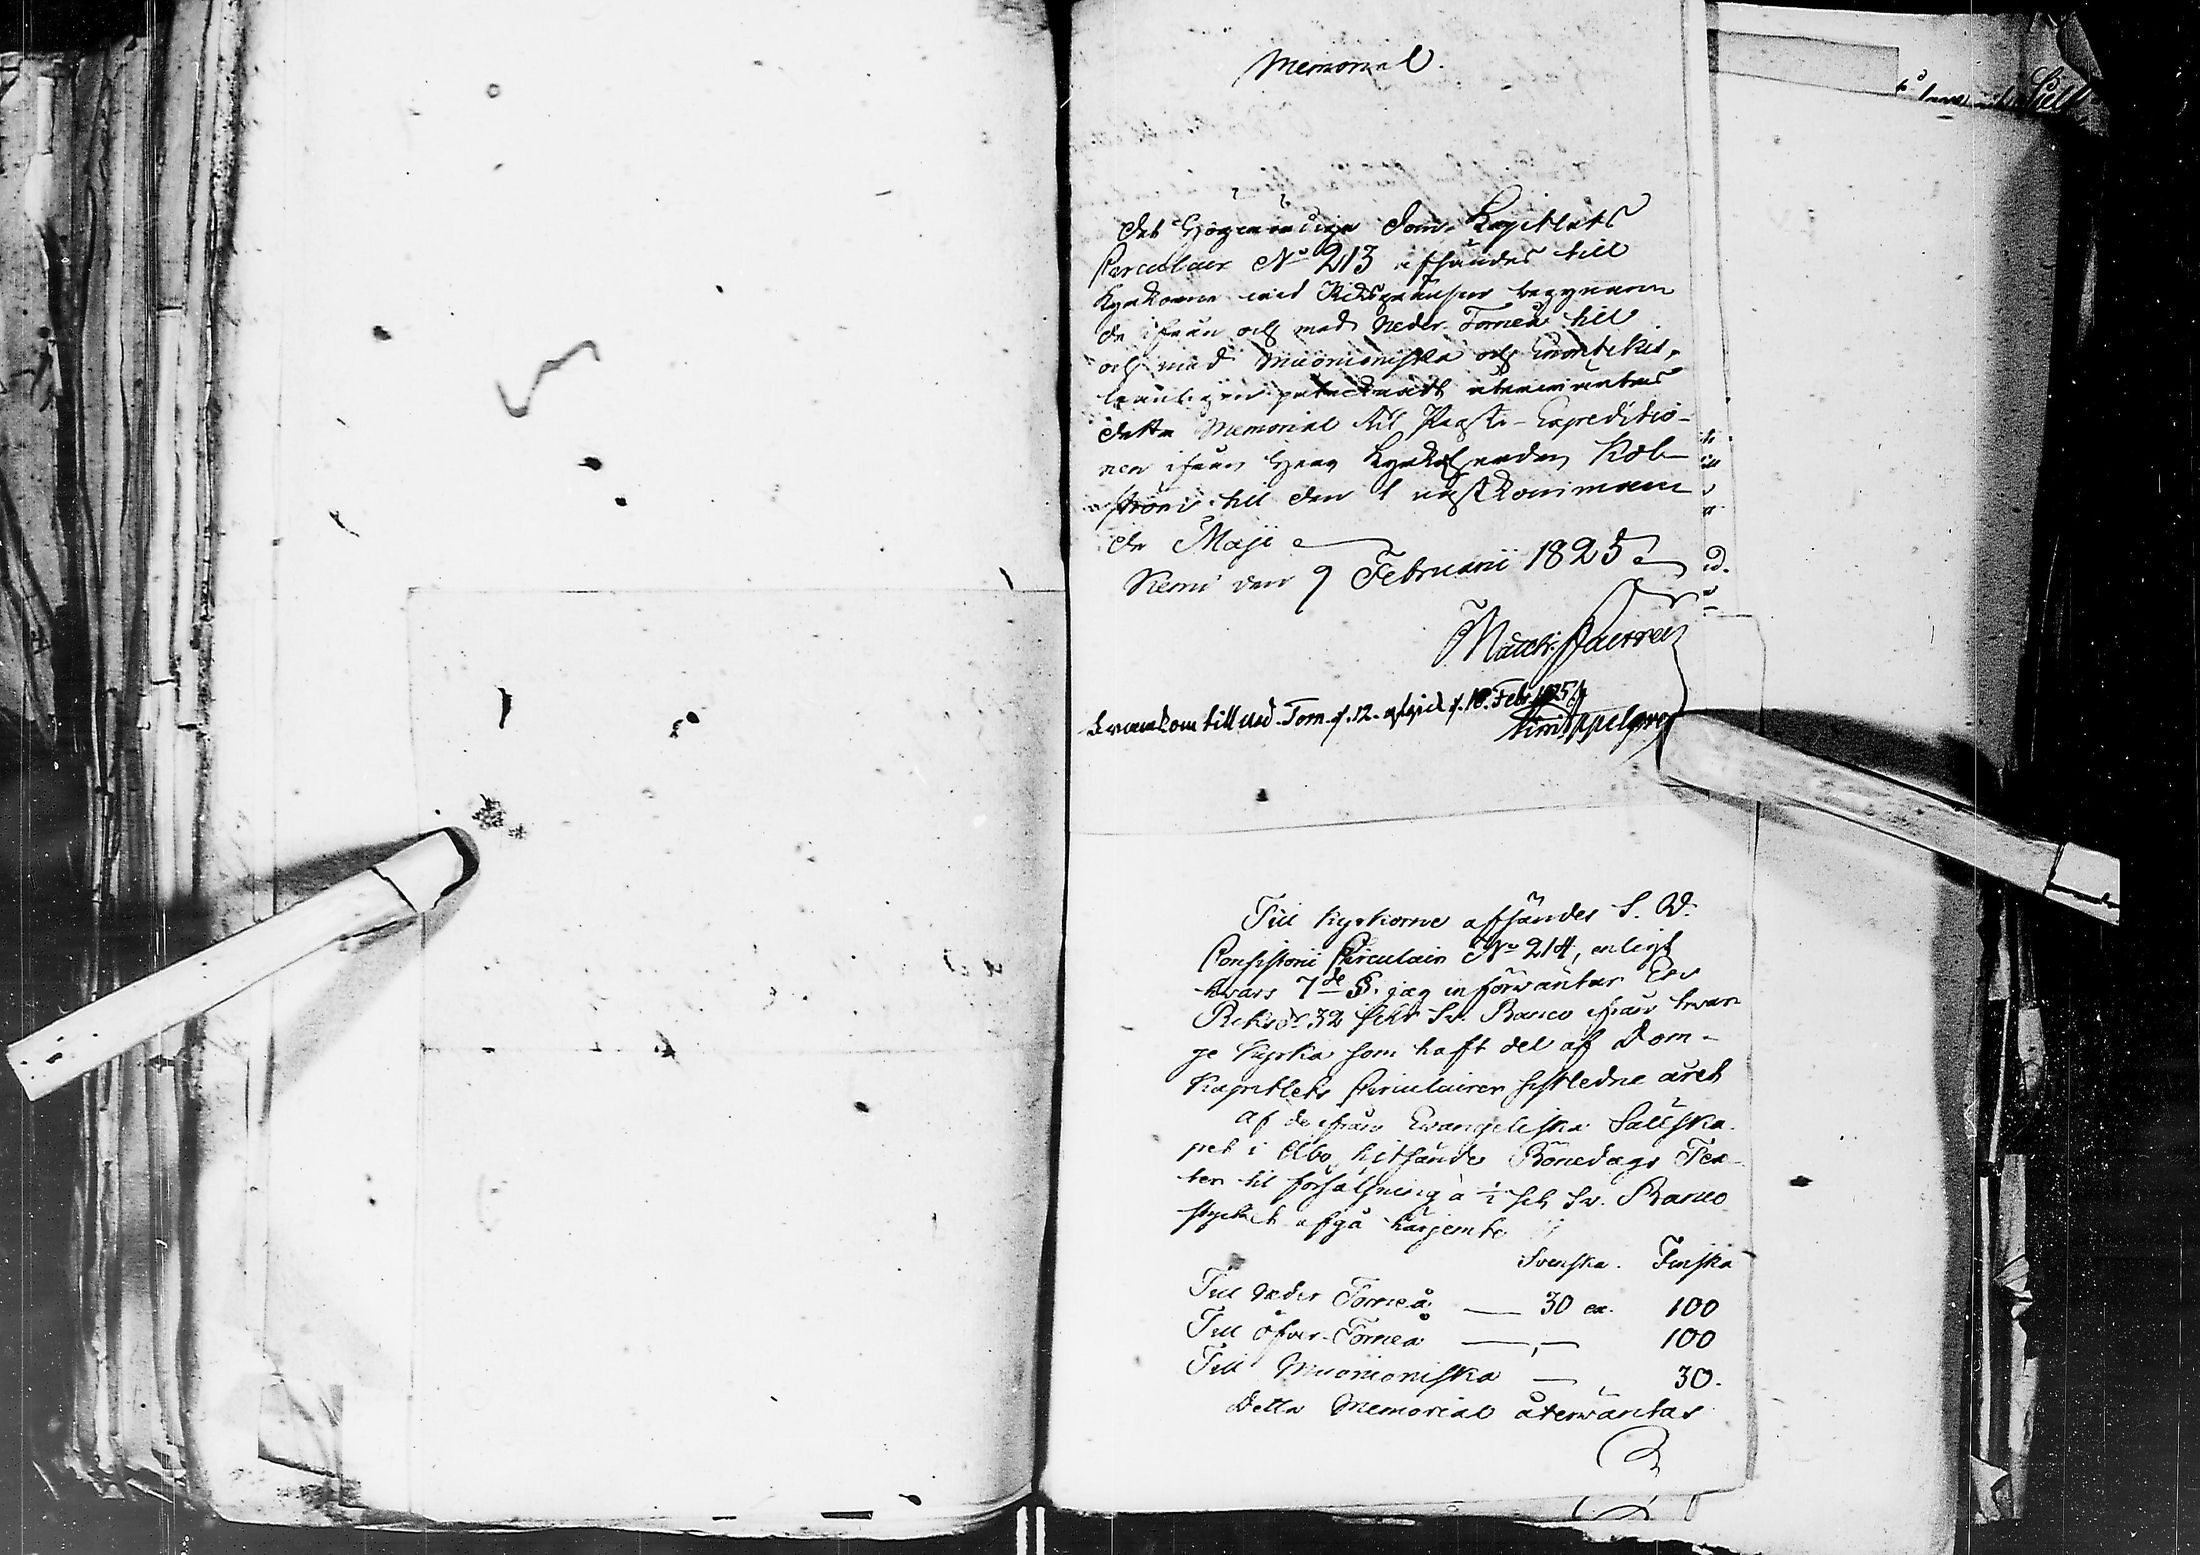 Memorial.
Det Högwördiga Dom-Kapitlets
Circulair No 213 afsändes till
Kyrkorne wid Riksgränsen begynnan
de ifrån och med Neder-Torneå till
och med Muonioniska och Enontekis,
hwarifrån återwäntas
detta Memorial till Prosts-Expeditio-
nen ifrån Herr Kyrkoherden Kol-
ström till den 1 nästkomman
de Maji
Kemi den 9 Februarii 1825
Matth. Castren
Framkom till Ned. Torn. d. 12. afgick d. 18. Febr. 1825
Appelgren
Till Kyrkorne afsändes S. W.
Consistorii Circulair No 214, enligt
hwars 7de §. jag införwäntar En
Riksdr 32 sk Sv. Banco ifrån hwar
je Kyrka som haft del af Dom-
Kapitlets Circulairer sistledne året
Af de ifrån Evangeliska Sällska
pet i Åbo hitsände Bönedags Tex-
ter til försäljning à ½ sk Sv. Banco
stycket afgå härjemte
Svenska. Finska
Till Neder Torneå — 30 ex. 100
Till Öfver-Torneå — „ — 100
Till Muonioniska — „ 30.
Detta Memorial återwäntas